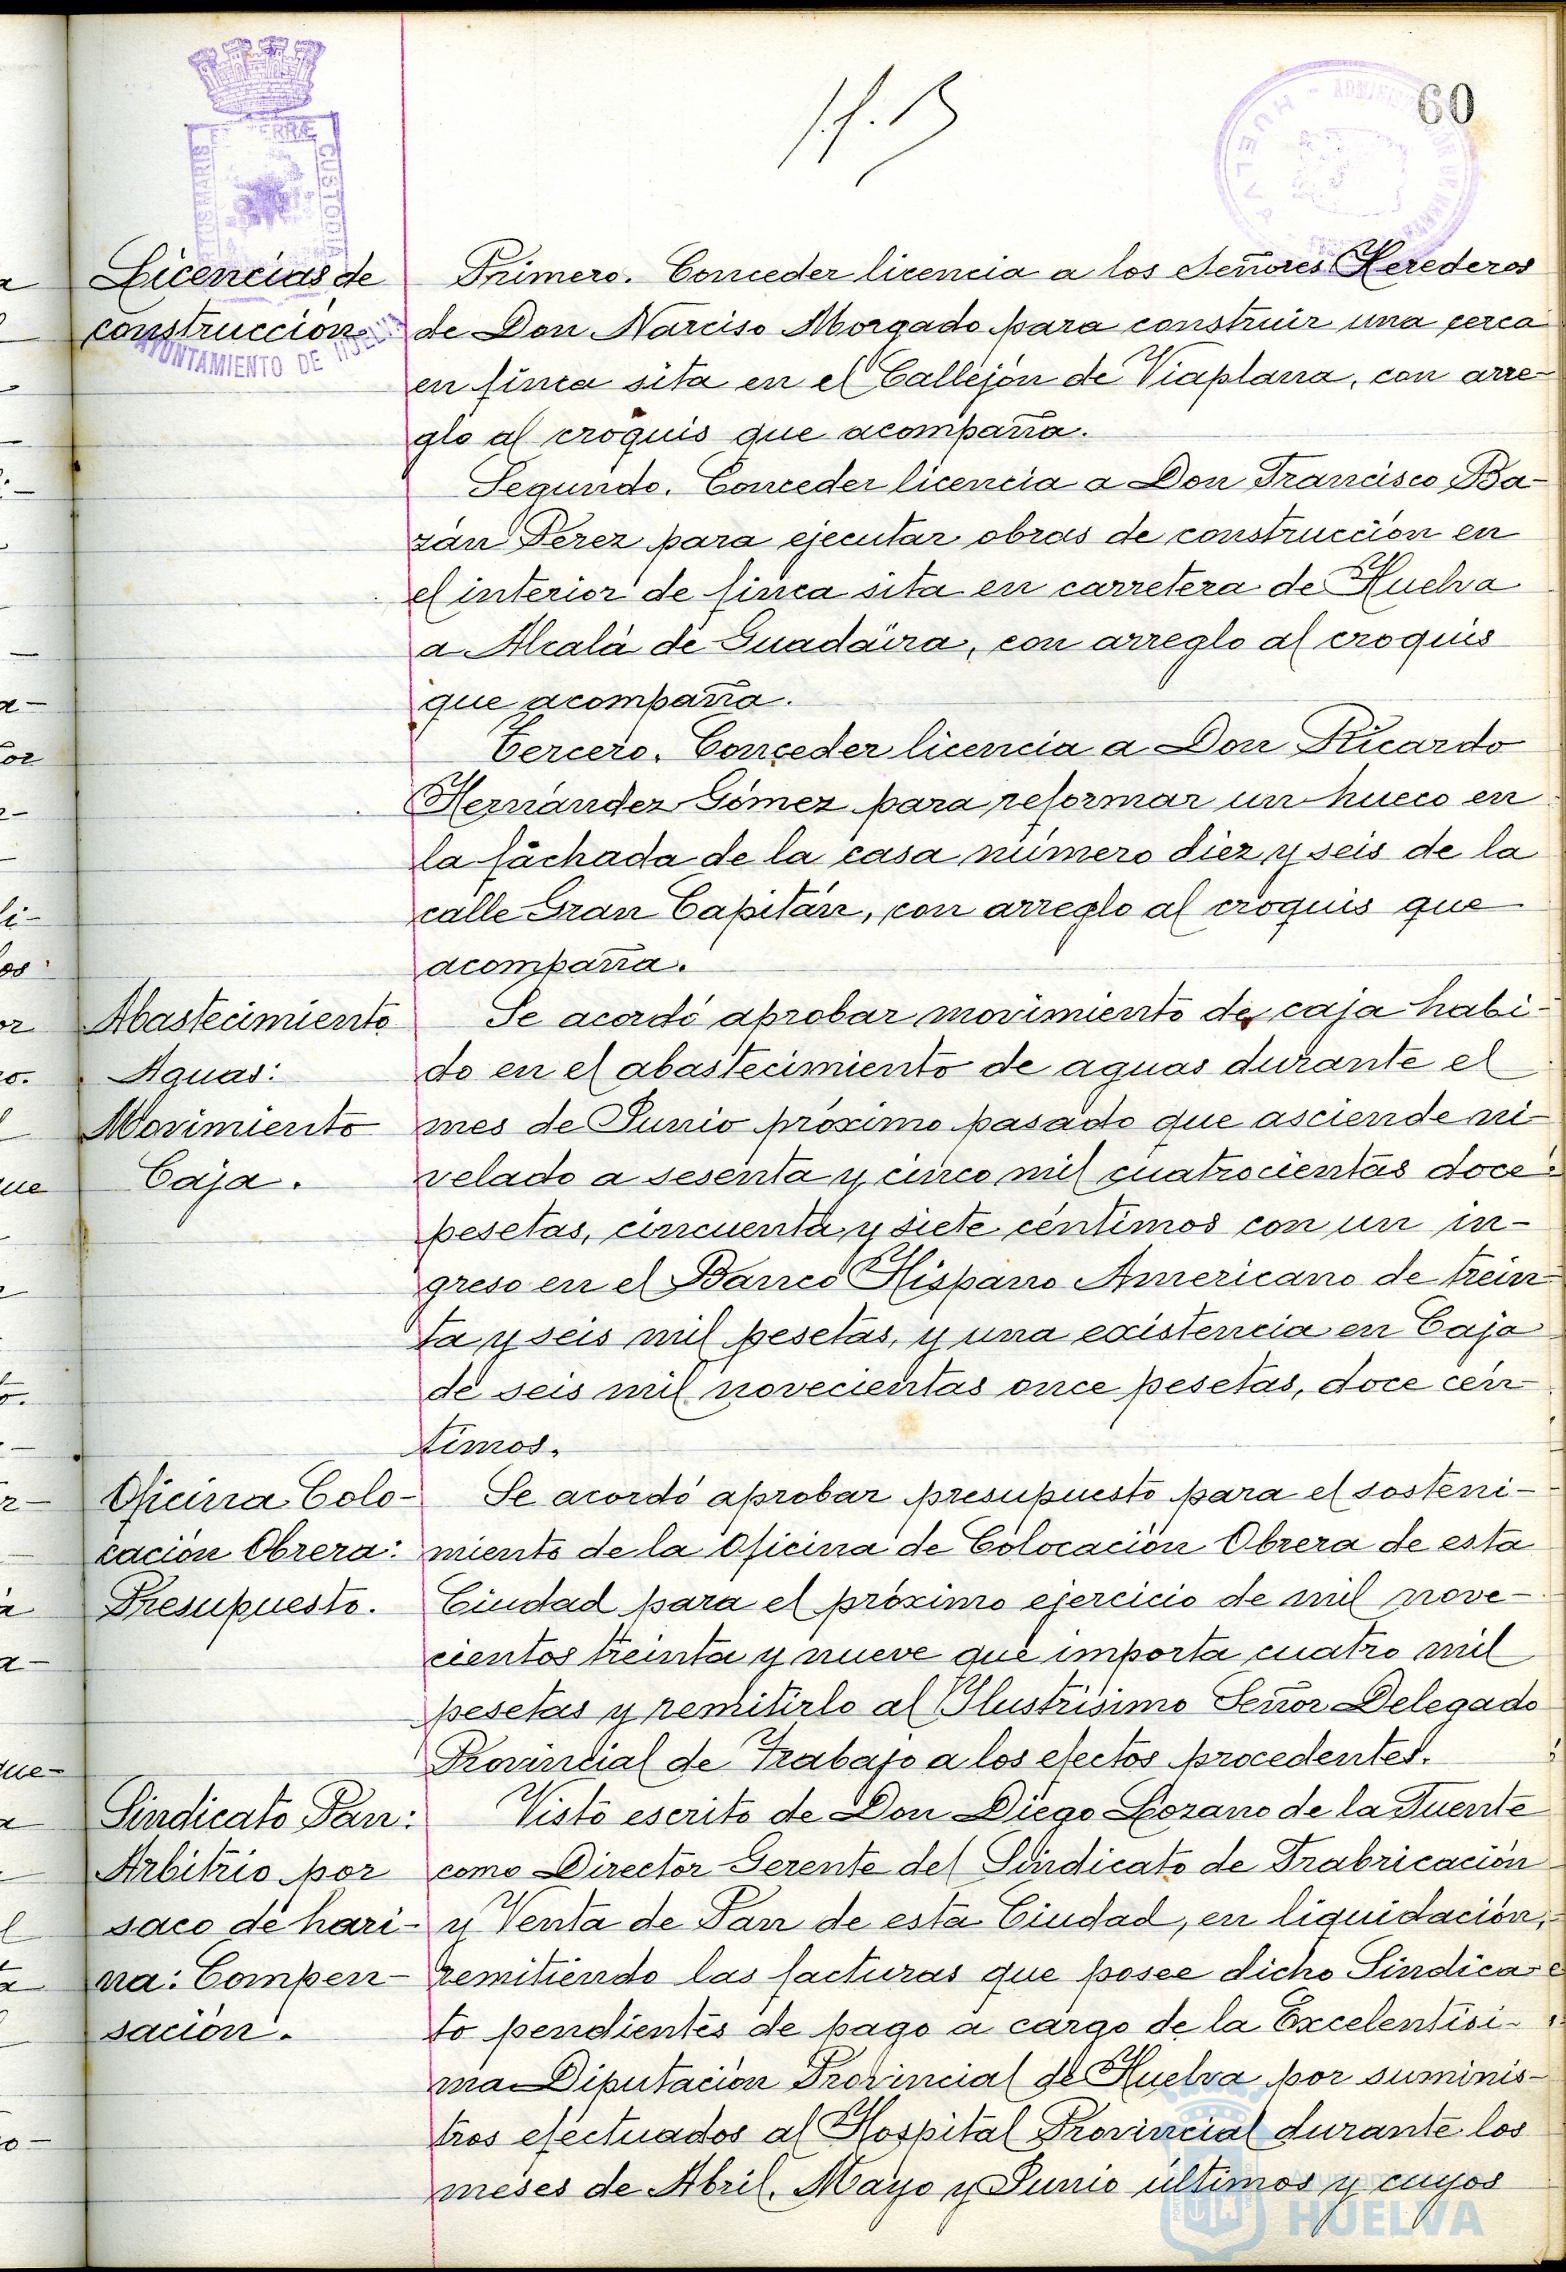 60
Licencias de
construcción.
Primero. Conceder licencia a los Señores Herederos
de Don Narciso Morgado para construir una cerca
en finca sita en el Callejón de Viaplana, con arre-
glo al croquis que acompaña.
Segundo. Conceder licencia a Don Francisco Ba-
zán Pérez para ejecutar obras de construcción en
el interior de finca sita en carretera de Huelva
a Alcalá de Guadaira, con arreglo al croquis
que acompaña.
Tercero. Conceder licencia a Don Ricardo
Hernández Gómez para reformar un hueco en
la fachada de la casa número diez y seis de la
calle Gran Capitán, con arreglo al croquis que
acompaña.
Abastecimiento
Aguas:
Movimiento
Caja.
Se acordó aprobar movimiento de caja habi-
do en el abastecimiento de aguas durante el
mes de Junio próximo pasado que asciende ni-
velado a sesenta y cinco mil cuatrocientas doce
pesetas, cincuenta y siete céntimos con un in-
greso en el Banco Hispano Americano de trein-
ta y seis mil pesetas, y una existencia en Caja
de seis mil novecientas once pesetas, doce cén-
timos.
Oficina Colo-
cación Obrera:
Presupuesto.
Se acordó aprobar presupuesto para el sosteni-
miento de la Oficina de Colocación Obrera de esta
Ciudad para el próximo ejercicio de mil nove-
cientos treinta y nueve que importa cuatro mil
pesetas y remitirlo al Ilustrísimo Señor Delegado
Provincial de Trabajo a los efectos procedentes.
Sindicato Pan:
Arbitrio por
saco de hari-
na: Compen-
sación.
Visto escrito de Don Diego Lozano de la Fuente
como Director Gerente del Sindicato de Frabricación
y Venta de Pan de esta Ciudad, en liquidación,
remitiendo las facturas que posee dicho Sindica-
to pendientes de pago a cargo de la Excelentísi-
ma Diputación Provincial de Huelva por suminis-
tros efectuados al Hospital Provincial durante los
meses de Abril, Mayo y Junio últimos y cuyos
AYUNTAMIENTO DE HUELVA
HUELVA